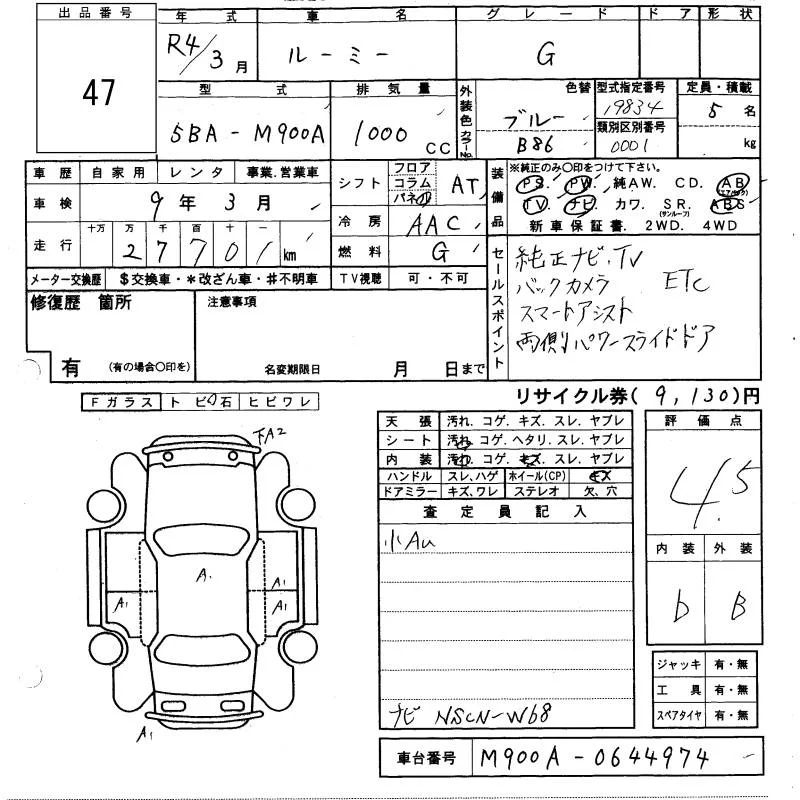 出品番号 47
年式 R4/3月
車名 ルーミー
グレード G
ドア 形状
型式 5BA-M900A
排気量 1000 CC
外装色 カラーNo. 色替 ブルー B86
型式指定番号 19834
類別区別番号 0001
定員・積載 5名 kg
車歴 自家用 レンタ 事業.営業車
車検 9年3月
走行 十万 万 千 百 十 一 27701 km
メーター交換歴 $交換車・*改ざん車・#不明車
シフト フロア コラム パネル AT
冷房 AAC
燃料 G
TV視聴 可・不可
装備品 ※純正のみ○印をつけて下さい。
PS. PW. 純AW. CD. AB(エアバック)
TV. ナビ. カワ. SR.(サンルーフ) ABS
新車保証書. 2WD. 4WD
セールスポイント
純正ナビ・TV
バックカメラ ETC
スマートアシスト
両側パワースライドドア
修復歴 箇所
有 (有の場合○印を)
注意事項
名変期限日 月 日まで
リサイクル券(9,130)円
Fガラス トビ石 ヒビワレ
天張 汚れ. コゲ. キズ. スレ. ヤブレ
シート 汚れ. コゲ. ヘタリ. スレ. ヤブレ
内装 汚れ. コゲ. キズ. スレ. ヤブレ
ハンドル スレ、ハゲ ホイール(CP) キズ
ドアミラー キズ、ワレ ステレオ 欠、穴
査定員記入
小AU
ナビ NSCN-W68
評価点
4.5
内装 外装
b B
ジャッキ 有・無
工具 有・無
スペアタイヤ 有・無
下A2
A.
A1
A1
A1
A1
車台番号 M900A-0644974